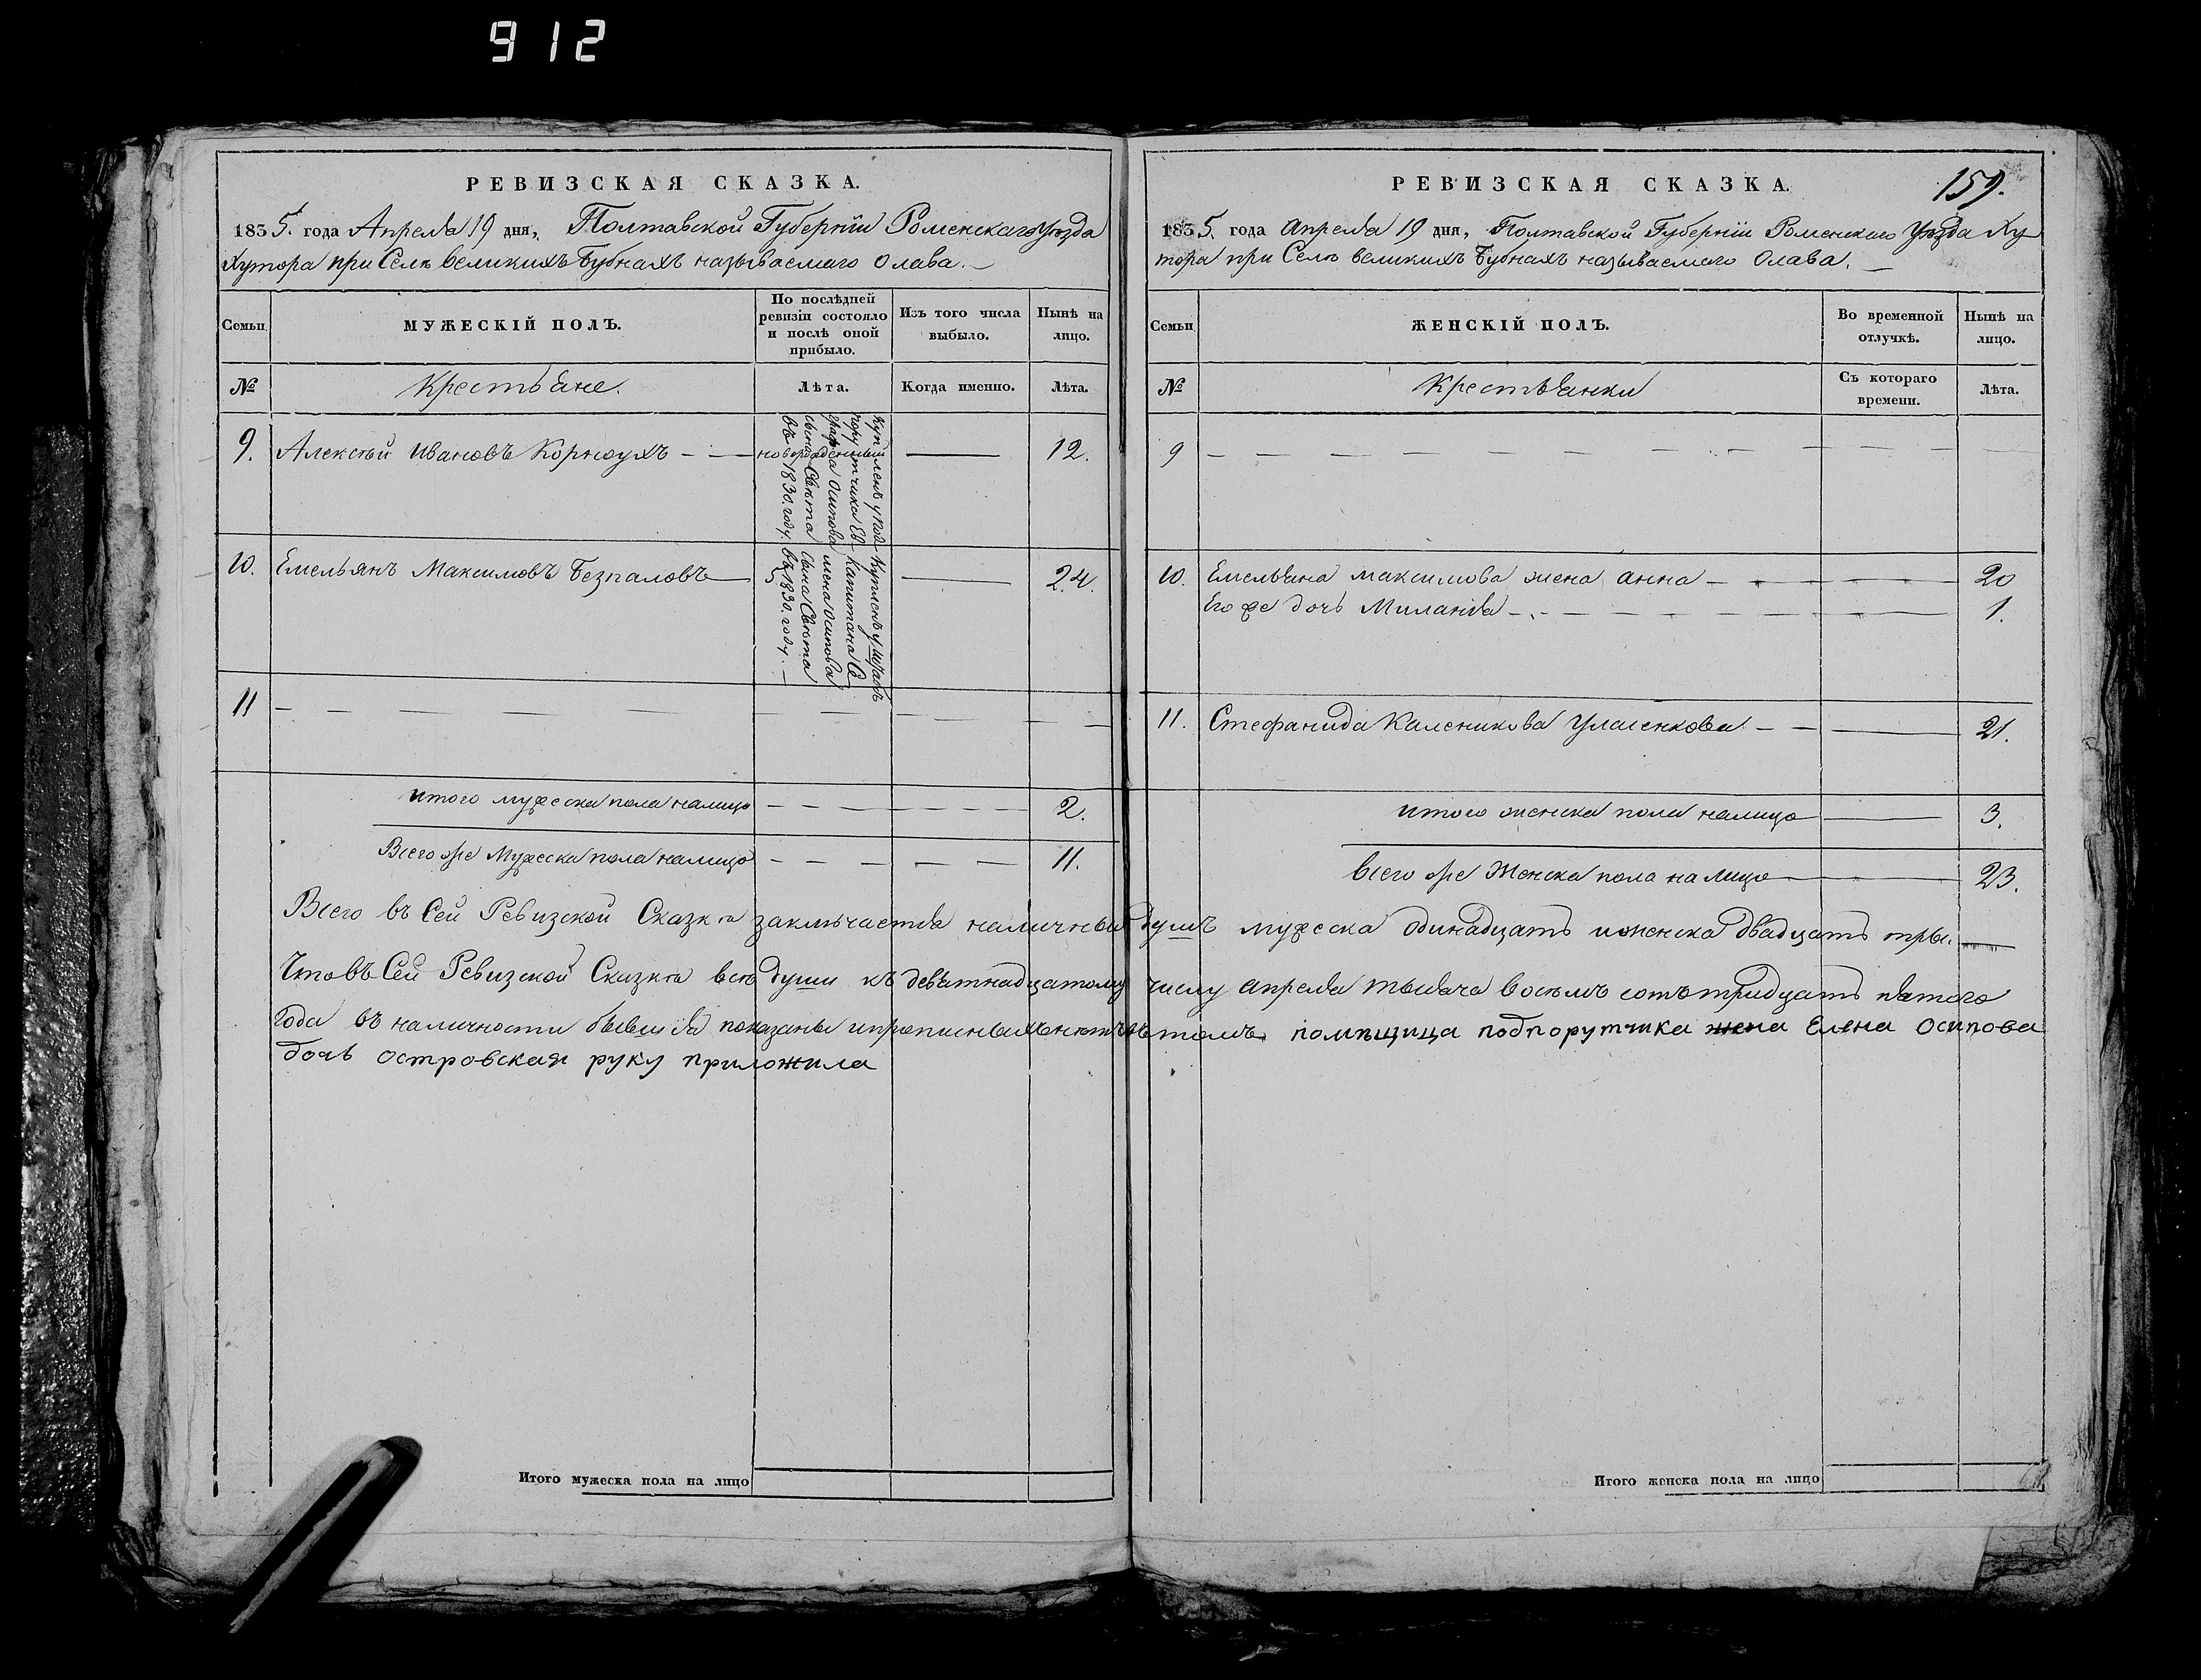 912
РЕВИЗСКАЯ СКАЗКА.
1835. года Апреля 19 дня, Полтавской Губерніи Роменскаго уезда
Хутора при Селе великихъ Бубнахъ называемаго Олава.
Семьи
МУЖЕСКІЙ ПОЛЪ.
По послѣдней ревизіи состояло и послѣ оной прибыло.
Изъ того числа выбыло.
Нынѣ на лицо.
№
Крестьяне.
Лѣта.
Когда именно.
Лѣта.
9. Алексѣй Ивановъ Корноухъ новорожденный 12.
купленъ у под
порутчика Ев
сына Свѣта
въ 1830. году.
10. Емельянъ Максимовъ Безпаловъ 5 24.
Купленъ у штабъ
Капитана
сына Свѣта
въ 1830. году.
11
итого мужеска пола налицо 2.
Всего же Мужеска пола налицо 11.
Итого мужеска пола на лицо
159.
РЕВИЗСКАЯ СКАЗКА.
1835. года апреля 19 дня, Полтавской Губерніи Роменскаго Уезда Ху
тора при Селе великихъ Бубнахъ называемаго Олава.
Семьи
ЖЕНСКІЙ ПОЛЪ.
Во временной отлучкѣ.
Нынѣ на лицо.
№
Крестьянки
Съ котораго времени.
Лѣта.
9
10. Емельяна максимова жена анна 20
Его же дочь Миланья 1.
11. Стефанида Каленикова 21.
итого женска пола налицо 3.
всего же Женска пола на лицо 23.
Всего въ Сей Ревизской Сказкѣ заключается наличныхъ душъ мужеска одинадцать и женска двадцать три.
Что въ Сей Ревизской Сказкѣ всѣ души къ девятнадцатому числу апреля тысяча восемъ сотъ тридцать пятого
года въ наличности бывшія показаны и прописныхъ нѣтъ въ томъ помѣщица подпорутчика жена Елена Осипова
дочь островская руку приложила
Итого женска пола на лицо